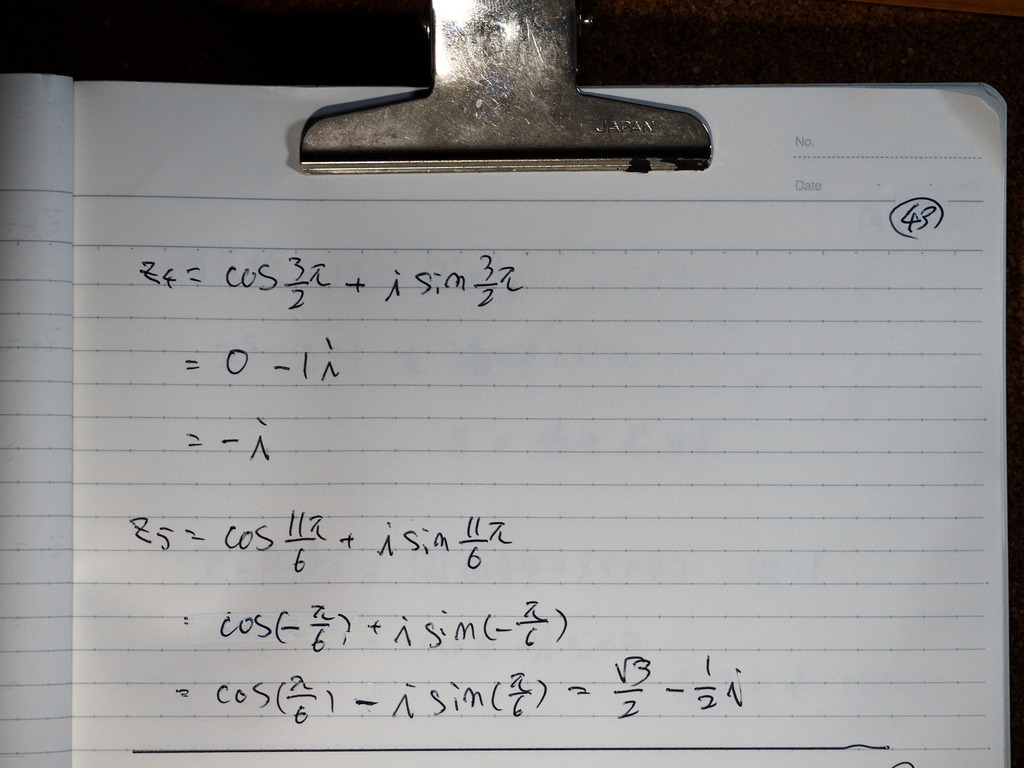 JAPAN
No.
Date
43
z₄ = cos 3/2 π + i sin 3/2 π
= 0 - 1 i
= - i
z₅ = cos 11π/6 + i sin 11π/6
= cos(-π/6) + i sin(-π/6)
= cos(π/6) - i sin(π/6) = √3/2 - 1/2 i